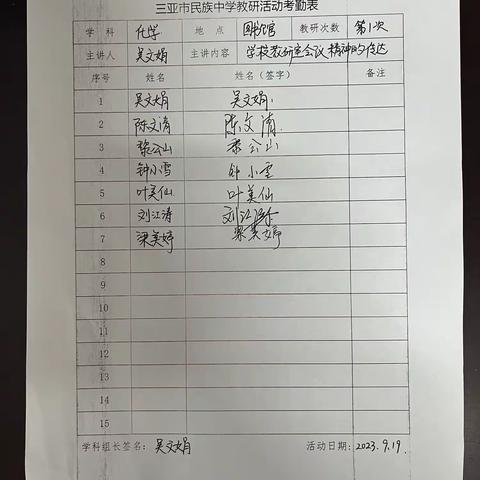 三亚市民族中学教研活动考勤表
学 科 化学 地 点 图书馆 教研次数 第1次
主讲人 吴文娟 主讲内容 学校教研室会议精神的传达
序号 姓名 姓名（签字） 备注
1 吴文娟 吴文娟
2 陈文清 陈文清
3 黎会山 黎会山
4 钟小雪 钟小雪
5 叶美仙 叶美仙
6 刘江涛 刘江涛
7 梁美婷 梁美婷
8
9
10
11
12
13
14
15
学科组长签名：吴文娟 活动日期：2023.9.19.